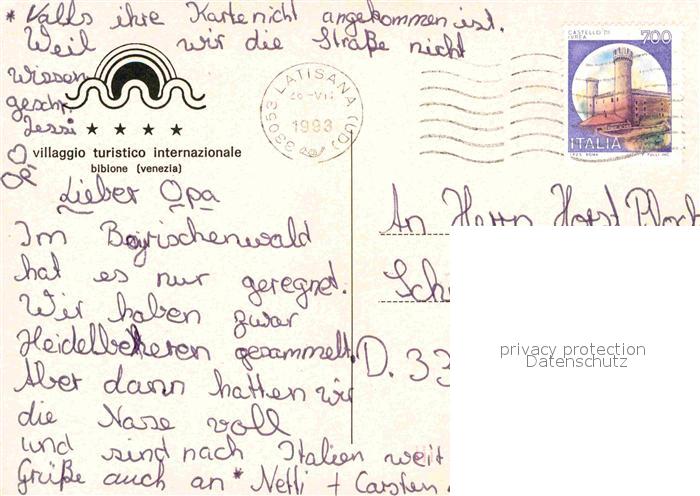 * Valls ihre Karte nicht angekommen ist.
Weil wir die Straße nicht
wissen
geschr.
Jessi
villaggio turistico internazionale
bibione (venezia)
Lieber Opa
Im Bayrischenwald
hat es nur geregnet.
Wir haben zwar
Heidelbeeren gesammelt.
Aber dann hatten wir
die Nase voll
und sind nach Italien weit
Grüße auch an * Netti + Carsten.
33053 LATISANA (UD)
1993
CASTELLO DI
IVREA
700
ITALIA
An Herrn Horst
D. 33
privacy protection
Datenschutz